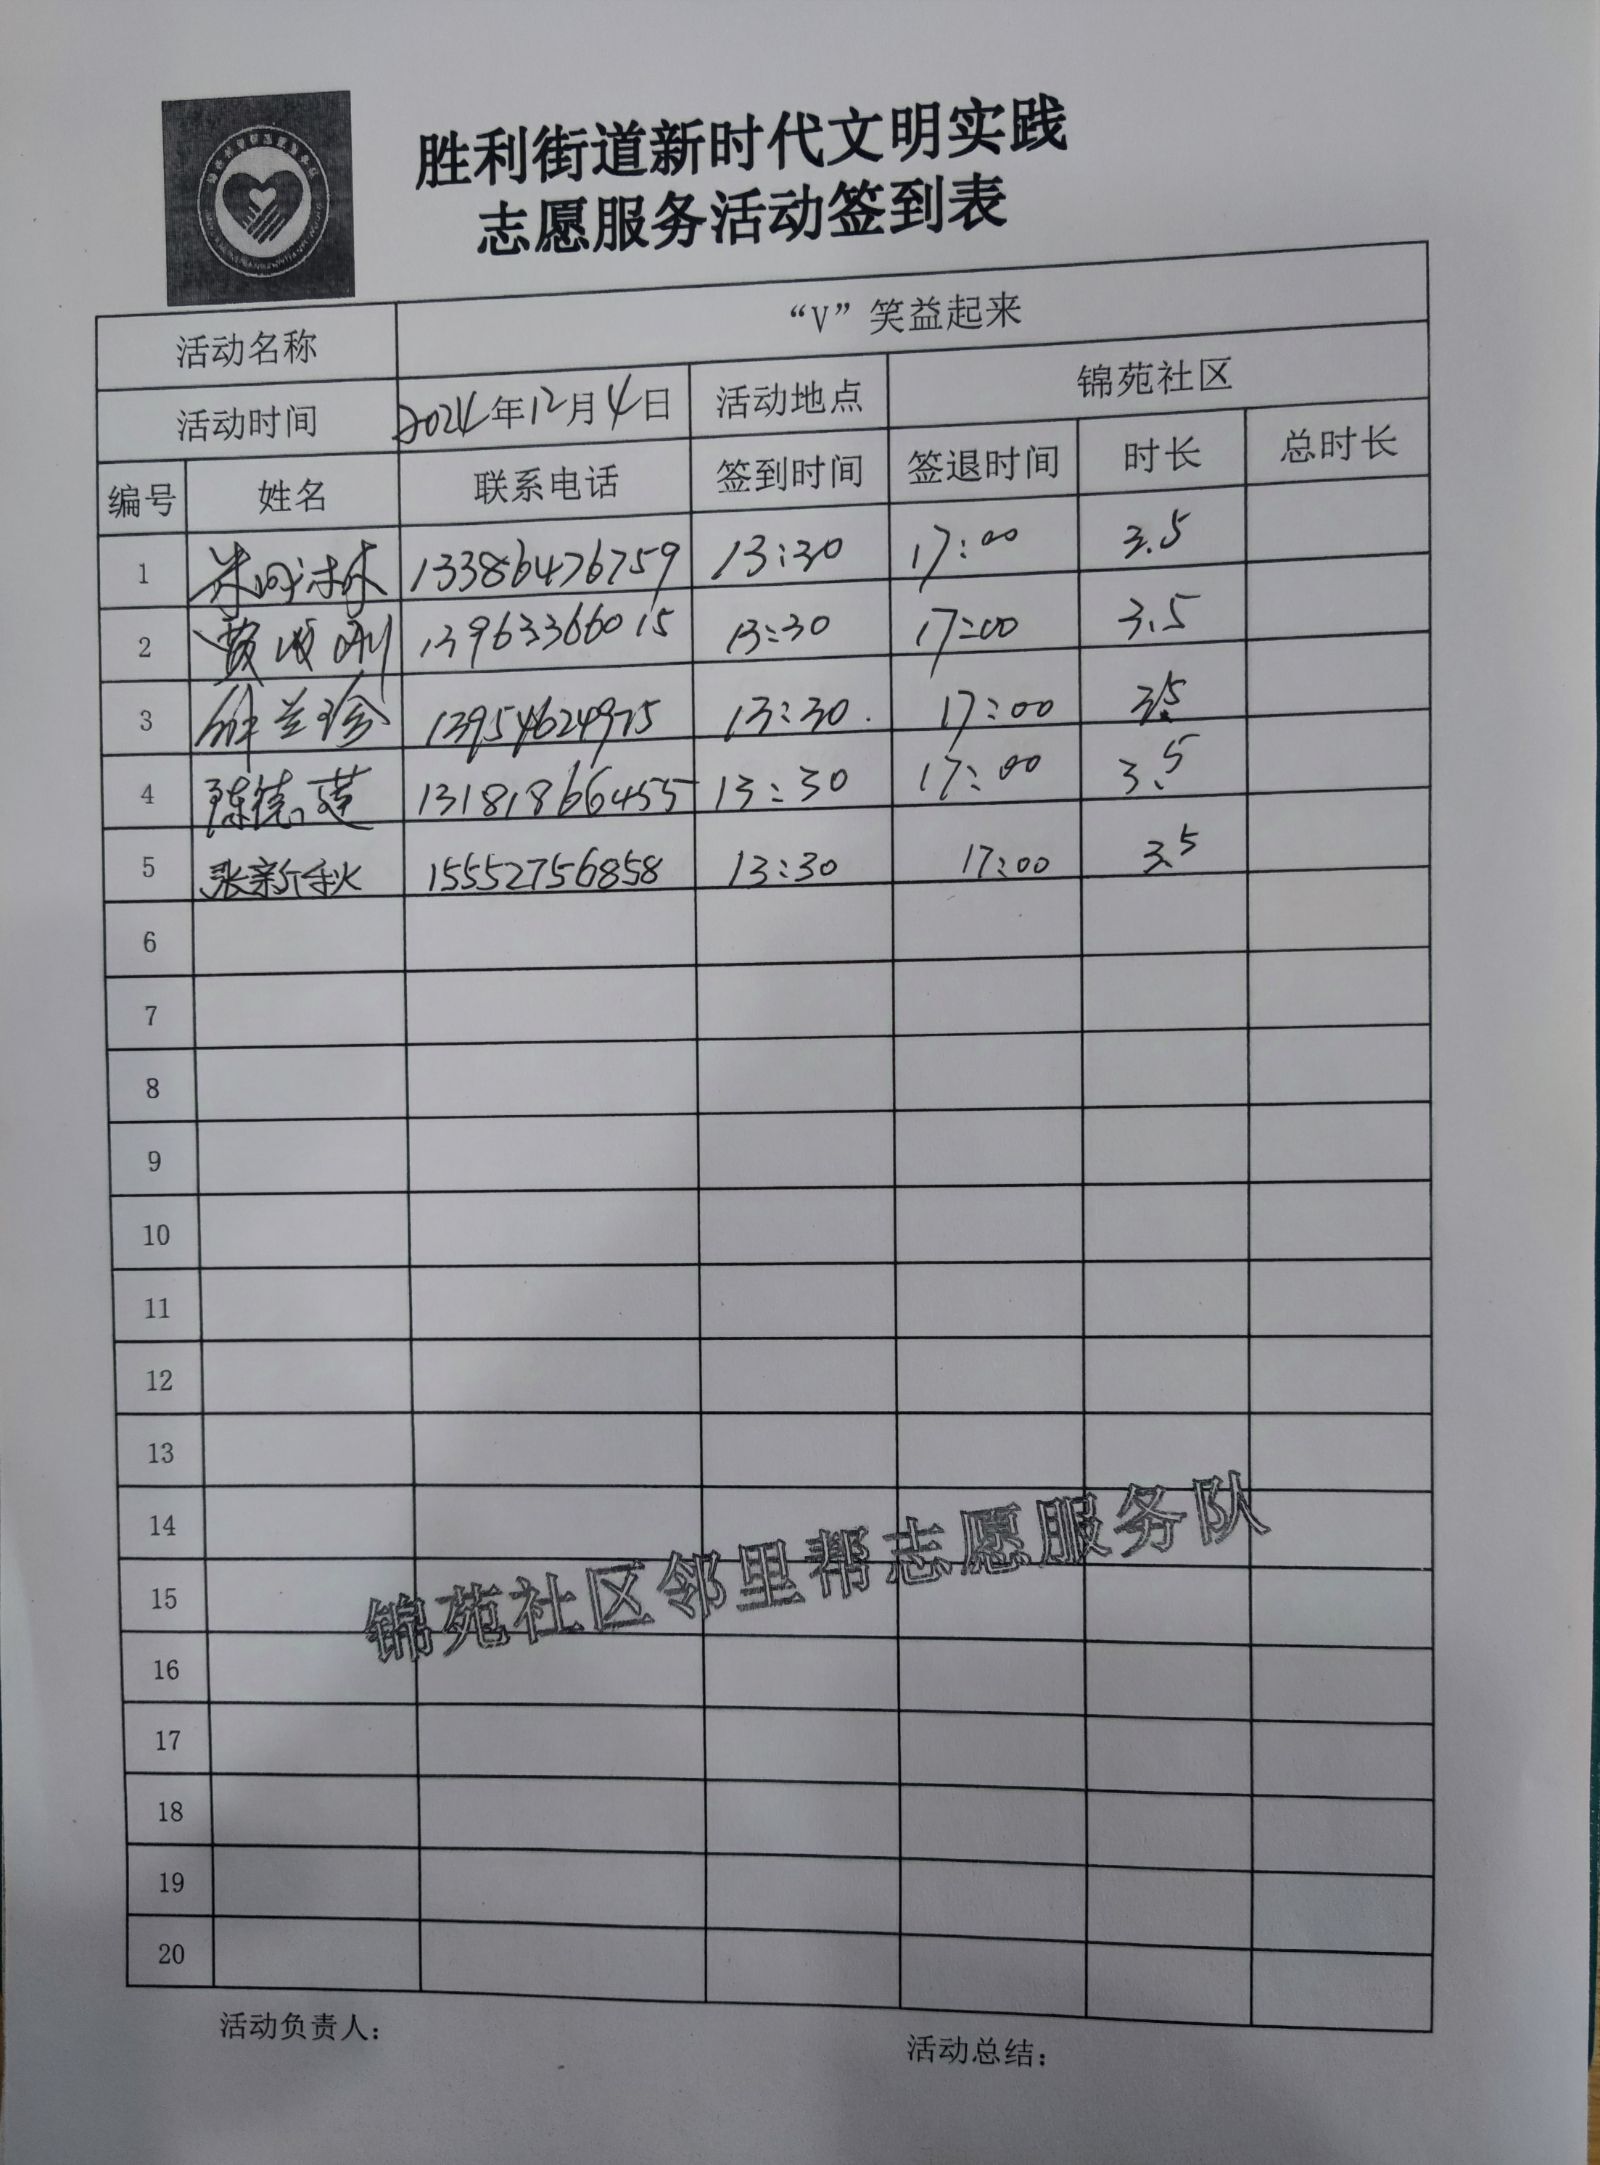 胜利街道新时代文明实践
志愿服务活动签到表
活动名称 “V”笑益起来
活动时间 2024年12月4日 活动地点 锦苑社区
编号 姓名 联系电话 签到时间 签退时间 时长 总时长
1 13386476759 13:30 17:00 3.5
2 13963366015 13:30 17:00 3.5
3 兰珍 13954624975 13:30 17:00 3.5
4 陈德莲 13181866455 13:30 17:00 3.5
5 张新秋 15552756858 13:30 17:00 3.5
6
7
8
9
10
11
12
13
14
15
16
17
18
19
20
锦苑社区邻里帮志愿服务队
活动负责人: 活动总结: